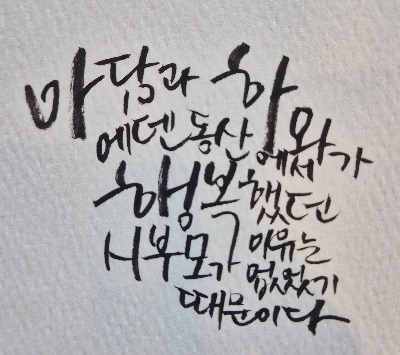 아담과 하와가
에덴동산에서
행복했던 이유는
시부모가 없었기
때문이다